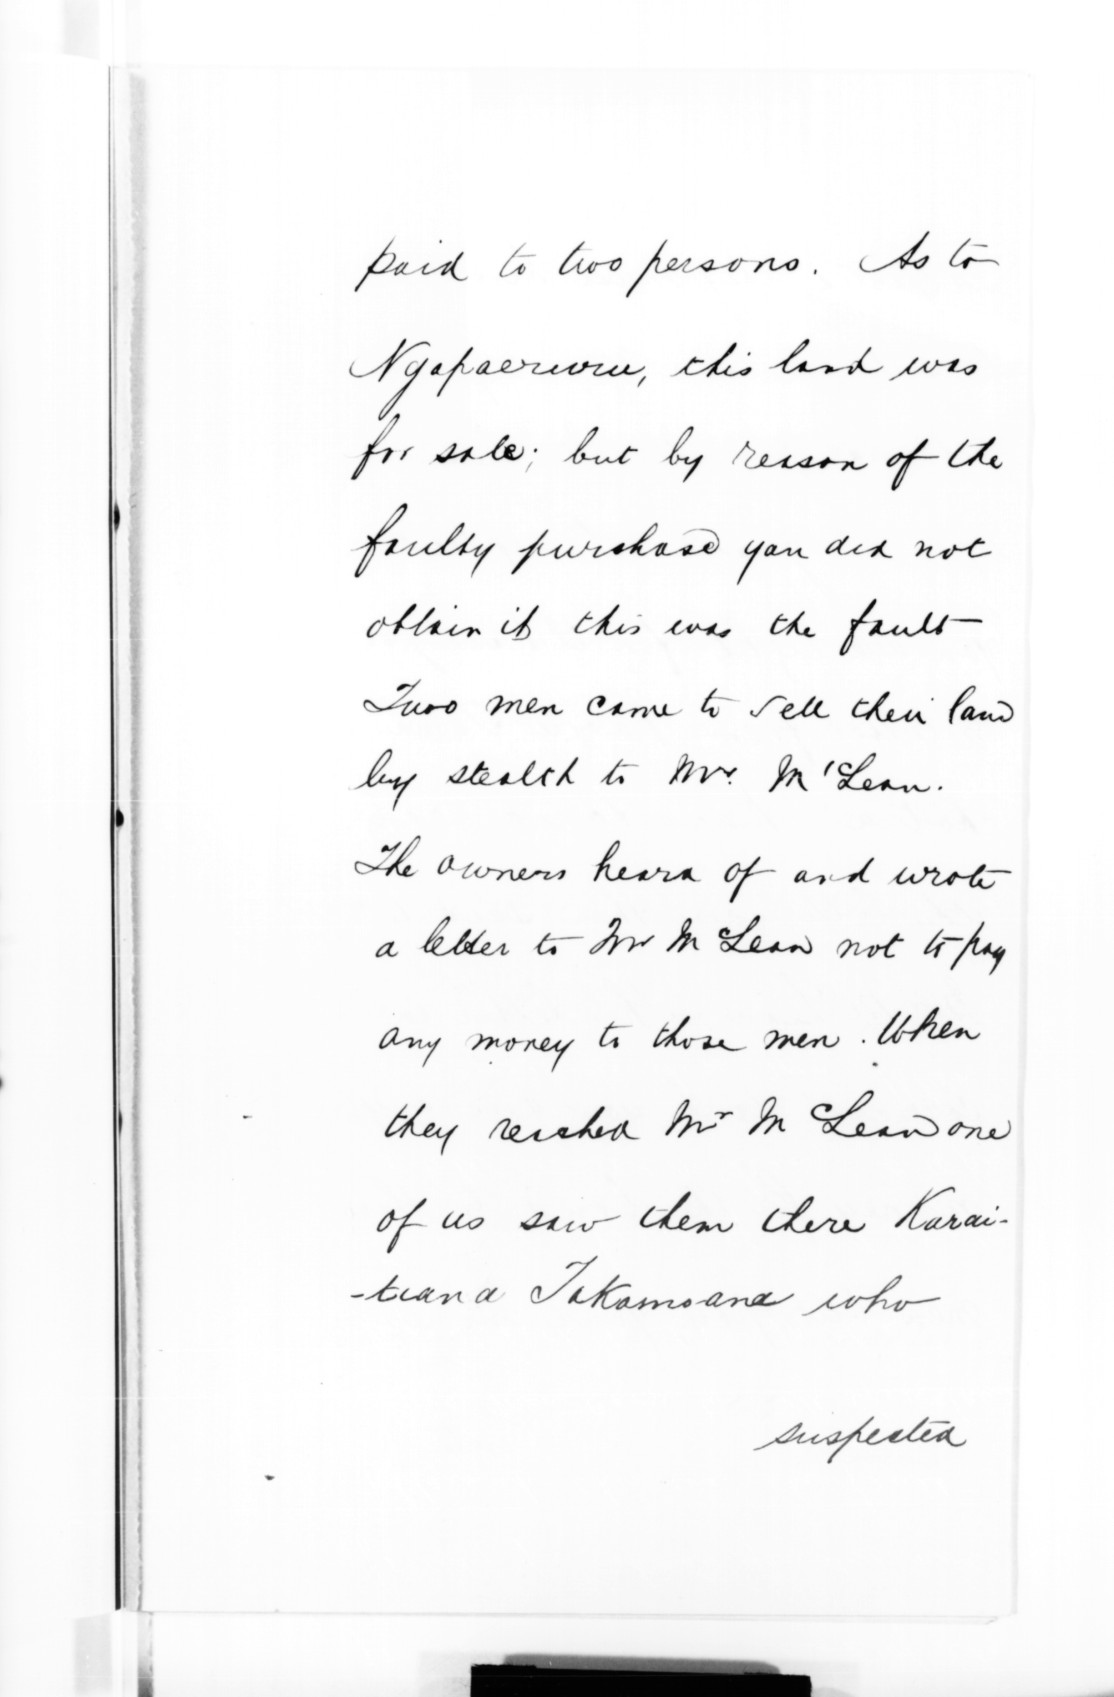 paid to two persons. As to
Ngapaeruru, this land was
for sale; but by reason of the
faulty purchase you did not
obtain it this was the fault
Two men came to sell their land
by stealth to Mr. McLean.
The owners heard of and wrote
a letter to Mr McLean not to pay
any money to those men. When
they reached Mr McLean one
of us saw them there Karai-
-tiana Takamoana who
suspected